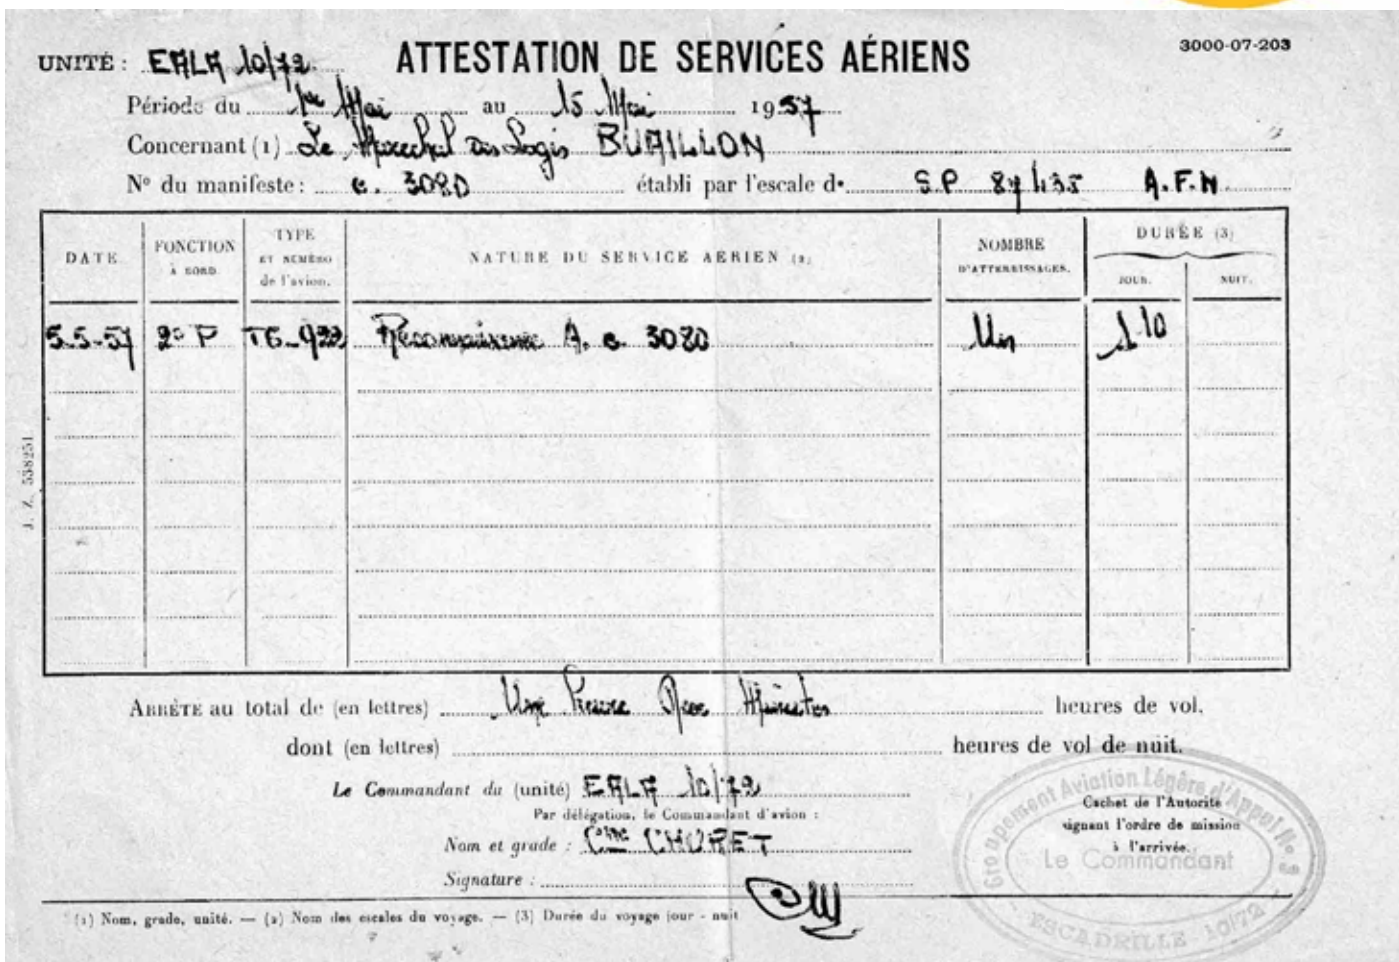 UNITÉ : EALA 10/72 ATTESTATION DE SERVICES AÉRIENS 3000-07-203
Période du 1er Mai au 15 Mai 1957
Concernant (1) Le Marechal des Logis BUAILLON
N° du manifeste : c. 3080 établi par l'escale de SP 87435 A.F.N.
DATE. FONCTION À BORD. TYPE ET NUMÉRO de l'avion. NATURE DU SERVICE AÉRIEN (2) NOMBRE D'ATTERRISSAGES. DURÉE (3)
JOUR. NUIT.
5-5-57 2° P T6-922 Reconnaissance A. c. 3080 Un 1 10
J. Z. 538251
ARRÊTÉ au total de (en lettres) Une heure Dix Minutes heures de vol.
dont (en lettres) heures de vol de nuit.
Le Commandant du (unité) EALA 10/72
Par délégation, le Commandant d'avion :
Nom et grade : CHORET
Signature :
Groupement Aviation Légère d'Appui No. 3
Cachet de l'Autorité
signant l'ordre de mission
à l'arrivée.
Le Commandant
- ESCADRILLE 10/72 -
(1) Nom, grade, unité. — (2) Nom des escales du voyage. — (3) Durée du voyage jour - nuit